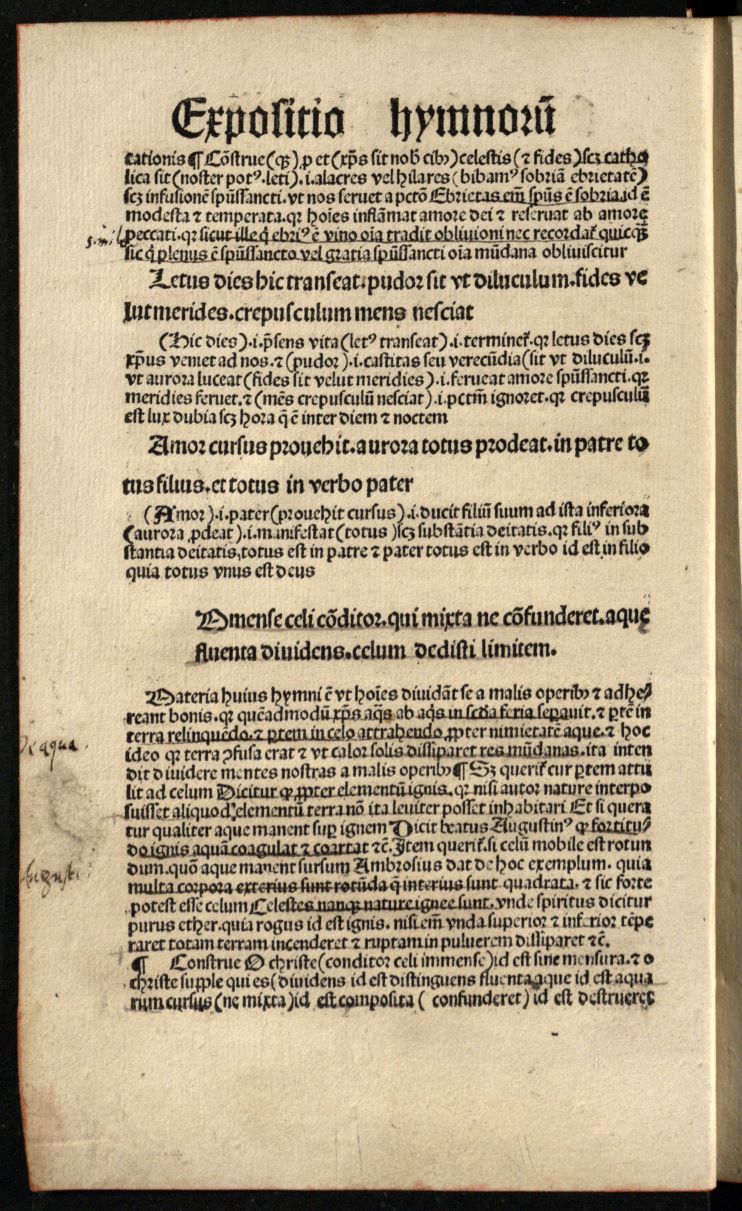 Expositio hymnorū
cationis ¶ Cōstrue (qꝫ) ꝓ et (xp̄s sit nob̄ cibꝰ) celestis (⁊ fides) scꝫ catho
lica sit (noster potꝰ. leti) .i. alacres vel hilares (bibamꝰ sobriā ebrietatē)
scꝫ infusionē spūssancti. vt nos seruet a pctō Ebrietas em̄ spūs ē sobria. id ē
modesta ⁊ temperata. qꝛ hoīes inflāmat amore dei ⁊ reseruat ab amore
peccati. qꝛ sicut ille q̄ ebriꝰ ē vino oīa tradit obliuioni nec recordat̄ quicqꝫ
sic q̄ plenus ē spūssancto vel gratia spūssancti oīa mūdana obliuiscitur
Letus dies hic transeat. pudor sit vt diluculum. fides ve
lut merides. crepusculum mens nesciat
(Hic dies) .i. p̄sens vita (letꝰ transeat) .i. terminet̄. qꝛ letus dies scꝫ
xp̄us veniet ad nos. ⁊ (pudor) .i. castitas seu verecūdia (sit vt diluculū .i.
vt aurora luceat (fides sit velut meridies) .i. ferueat amore spūssancti. qꝛ
meridies feruet. ⁊ (mēs crepusculū nesciat) .i. pctm̄ ignoret. qꝛ crepusculū
est lux dubia scꝫ hora q̄ ē inter diem ⁊ noctem
Amor cursus prouehit. aurora totus prodeat. in patre to
tus filius. et totus in verbo pater
(Amor) .i. pater (prouehit cursus) .i. ducit filiū suum ad ista inferiora
(aurora ꝓdeat) .i. manifestat (totus) scꝫ substātia deitatis. qꝛ filiꝰ in sub
stantia deitatis, totus est in patre ⁊ pater totus est in verbo id est in filio
quia totus vnus est deus
Omense celi cōditor. qui mixta ne cōfunderet. aque
fluenta diuidens. celum dedisti limitem.
Materia huius hymni ē vt hoīes diuidāt se a malis operibꝰ ⁊ adhe⸗
reant bonis. qꝛ quēadmodū xp̄s aq̄s ab aq̄s in scd̄a feria sepauit. ⁊ ꝑtē in
terra relinquēdo. ⁊ ꝑtem in celo attrahendo ꝓpter nimietatē aque. ⁊ hoc
ideo qꝛ terra ꝯfusa erat ⁊ vt calor solis dissiparet res mūdanas. ita inten
dit diuidere mentes nostras a malis operibꝰ ¶ Sꝫ querit̄ cur ꝑtem attu
lit ad celum Dicitur ꝙ ꝓpter elementū ignis. qꝛ nisi autor nature interpo
suisset aliquod elementū terra nō ita leuiter posset inhabitari Et si quera
tur qualiter aque manent suꝑ ignem Dicit beatus Augustinꝰ ꝙ fortitu⸗
do ignis aquā coagulat ⁊ coartat ⁊c̄. Item querit̄. si celū mobile est rotun
dum. quō aque manent sursum Ambrosius dat de hoc exemplum. quia
multa corpora exterius sunt rotūda q̄ interius sunt quadrata. ⁊ sic forte
potest esse celum Celestes nanqꝫ nature ignee sunt. vnde spiritus dicitur
purus ether. quia rogus id est ignis. nisi em̄ vnda superior ⁊ inferior tēpe
raret totam terram incenderet ⁊ ruptam in puluerem dissiparet ⁊c̄.
¶ Construe O christe (conditor celi immense) id est sine mensura. ⁊ o
christe supple qui es (diuidens id est distinguens fluenta aque id est aqua
rum cursus (ne mixta) id est composita ( confunderet) id est destrueret
De aqua.
Augusti